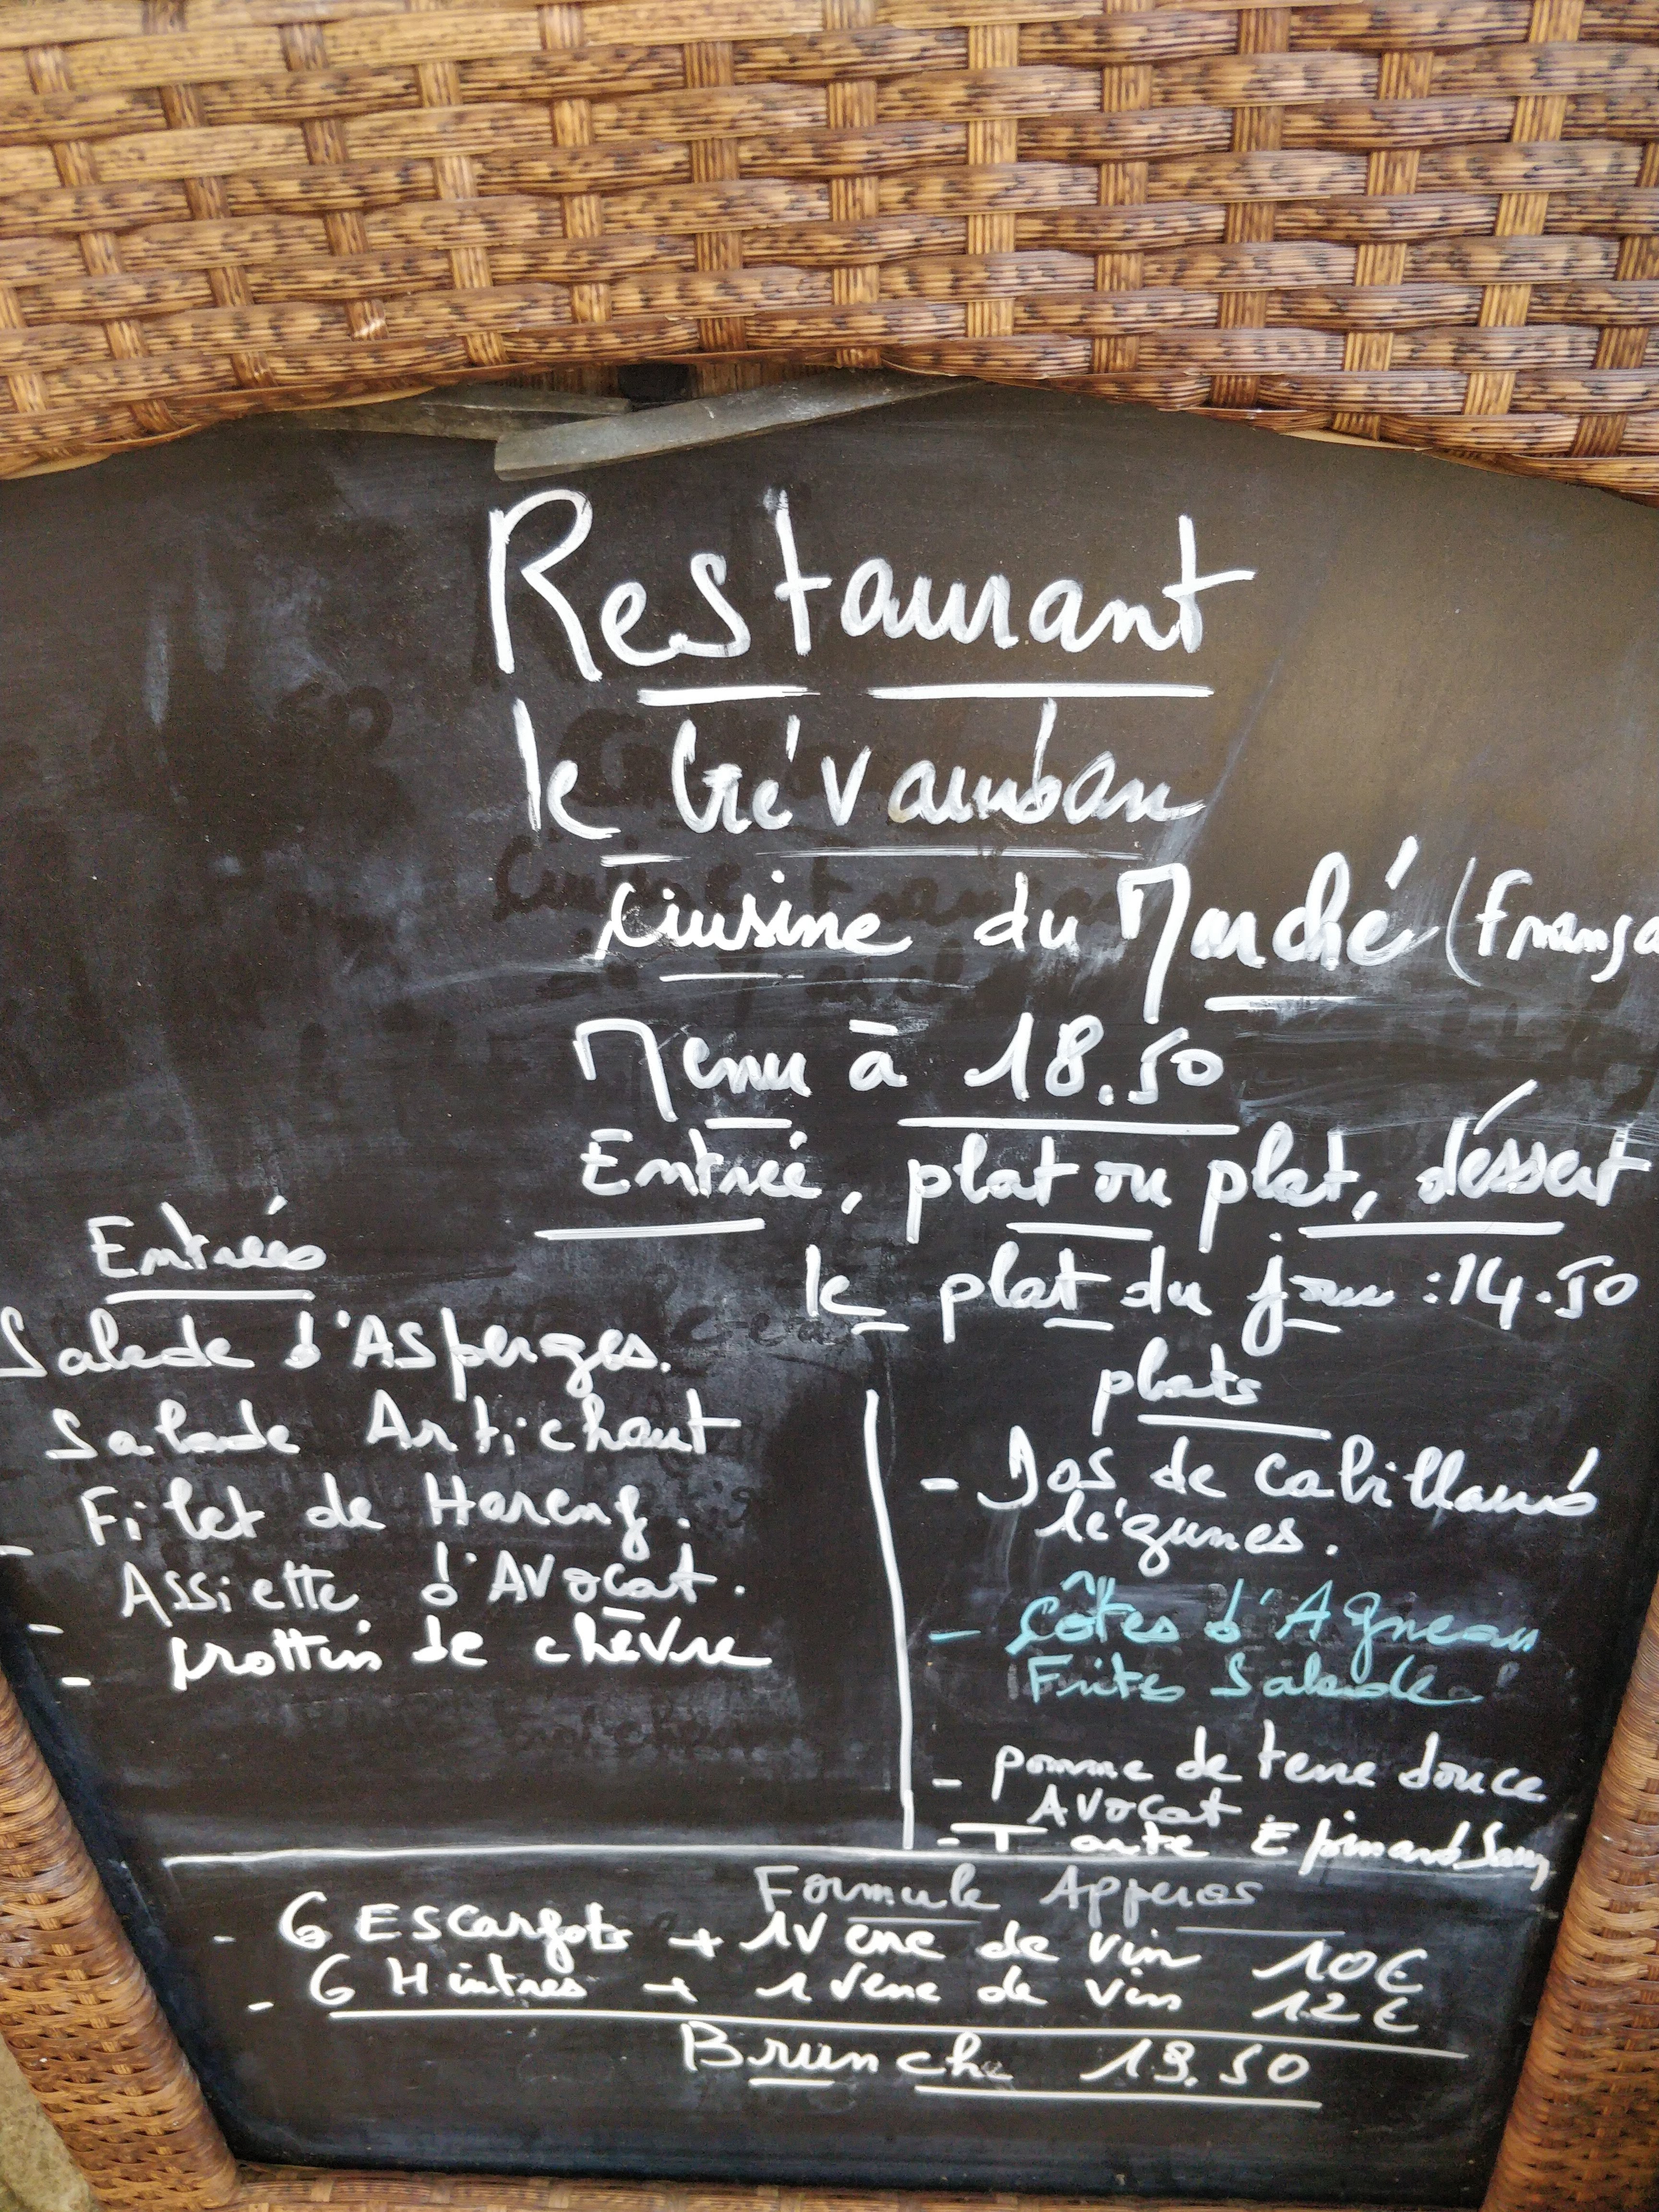 Restaurant
le Crévauban
Cuisine du Marché (França
Menu à 18.50
Entrée, plat ou plat, déssert
le plat du jour : 14.50
Entrées
Salade d'Asperges.
Salade Artichaut
Filet de Hareng.
- Assiette d'Avocat.
- Crottin de chèvre
plats
- Dos de cabillaud
légumes.
- Côtes d'Agneau
Frites Salade
- pomme de terre douce
Avocat
- Tarte Epinard
Formule Apperos
- 6 Escargots + 1 verre de vin 10€
- 6 Huitres + 1 verre de vin 12€
Brunch 19.50